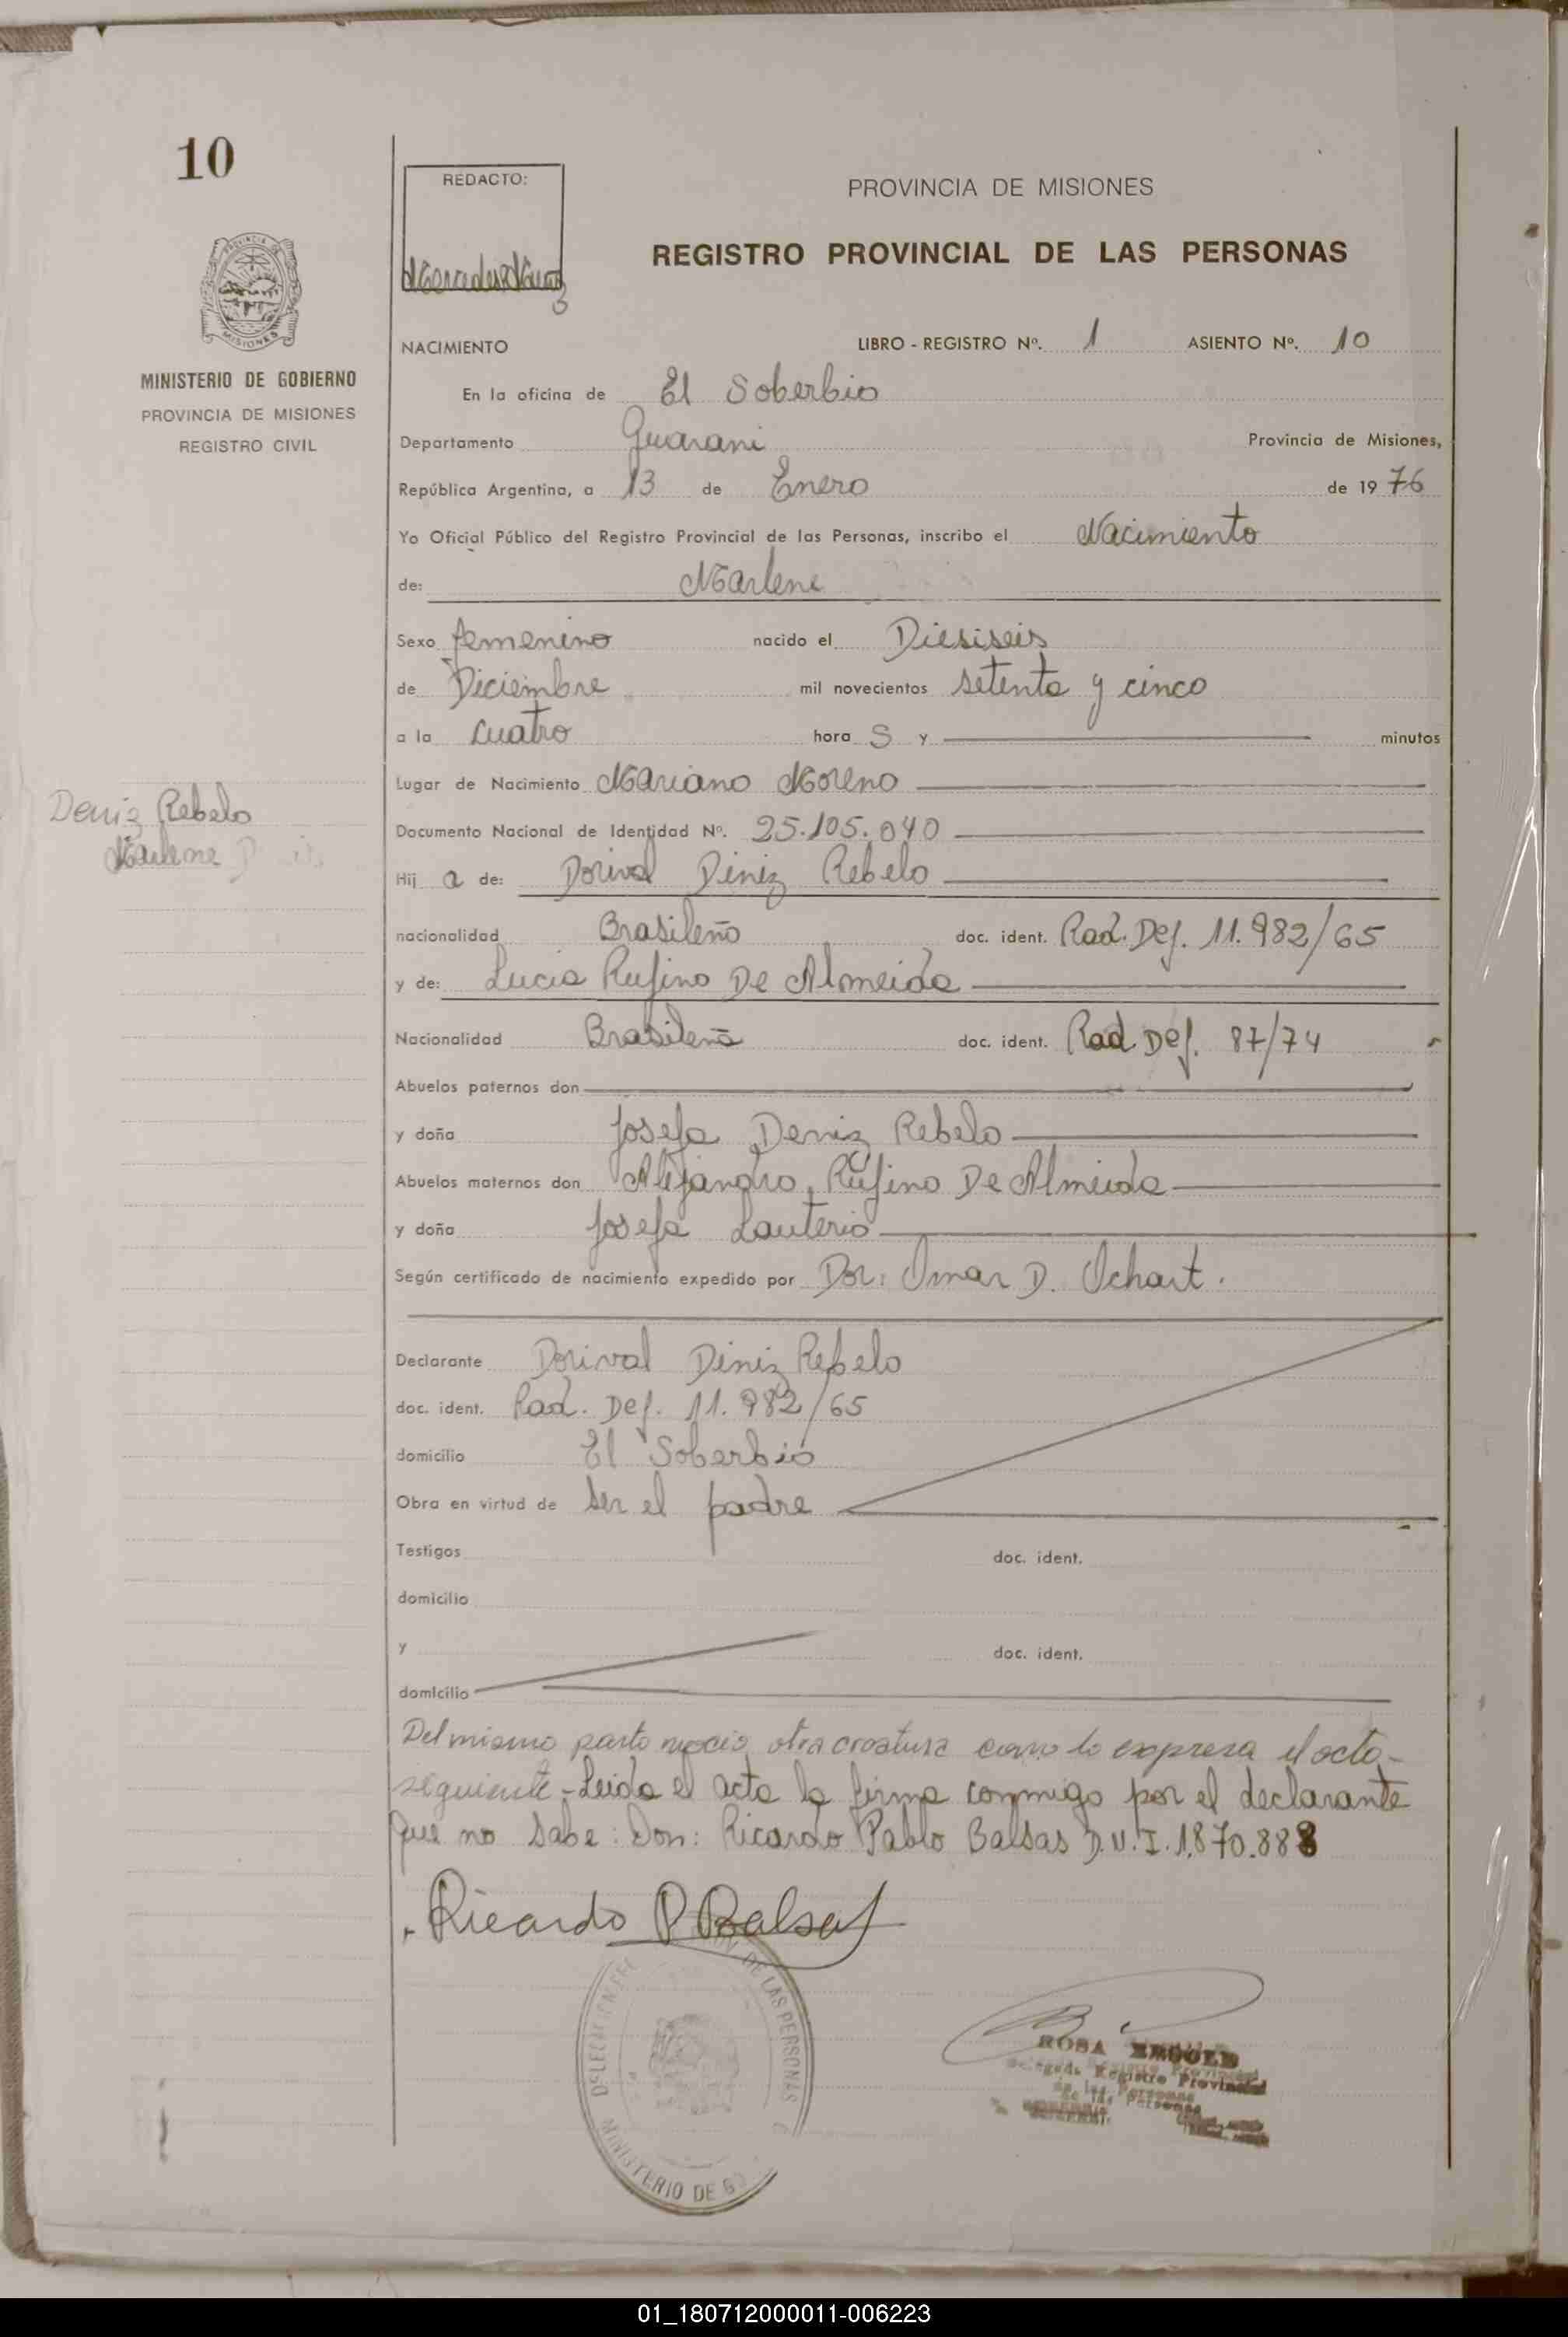 10
REDACTO:
PROVINCIA DE MISIONES
REGISTRO PROVINCIAL DE LAS PERSONAS
MISIONES
MINISTERIO DE GOBIERNO
PROVINCIA DE MISIONES
REGISTRO CIVIL
NACIMIENTO LIBRO - REGISTRO Nº. 1 ASIENTO Nº. 10
En la oficina de El Soberbio
Departamento Guarani Provincia de Misiones,
República Argentina, a 13 de Enero de 19 76
Yo Oficial Público del Registro Provincial de las Personas, inscribo el Nacimiento
de: Marlene
Sexo femenino nacido el Diesiseis
de Diciembre mil novecientos setenta y cinco
a la cuatro hora S y minutos
Lugar de Nacimiento Mariano Moreno
Deniz Rebelo
Marlene
Documento Nacional de Identidad Nº. 25.105.040
Hij a de: Dorival Diniz Rebelo
nacionalidad Brasileño doc. ident. Rad. Def. 11.982/65
y de: Lucia Rufino De Almeida
Nacionalidad Brasileña doc. ident. Rad Def. 87/74
Abuelos paternos don
y doña Josefa Deniz Rebelo
Abuelos maternos don Alejandro Rufino De Almeida
y doña Josefa Lauterio
Según certificado de nacimiento expedido por Dor: Omar D. Ochart.
Declarante Dorival Diniz Rebelo
doc. ident. Rad. Def. 11.982/65
domicilio El Soberbio
Obra en virtud de ser el padre
Testigos doc. ident.
domicilio
y doc. ident.
domicilio
Del mismo parto nacio otra creatura como lo expresa el acta
siguiente - Leida el acta la firma conmigo por el declarante
que no sabe: Don: Ricardo Pablo Balsas D.N.I. 1.870.888
Ricardo P Balsas
DE LAS PERSONAS
MINISTERIO DE
ROSA
Registro Provincial
de las Personas
01_180712000011-006223